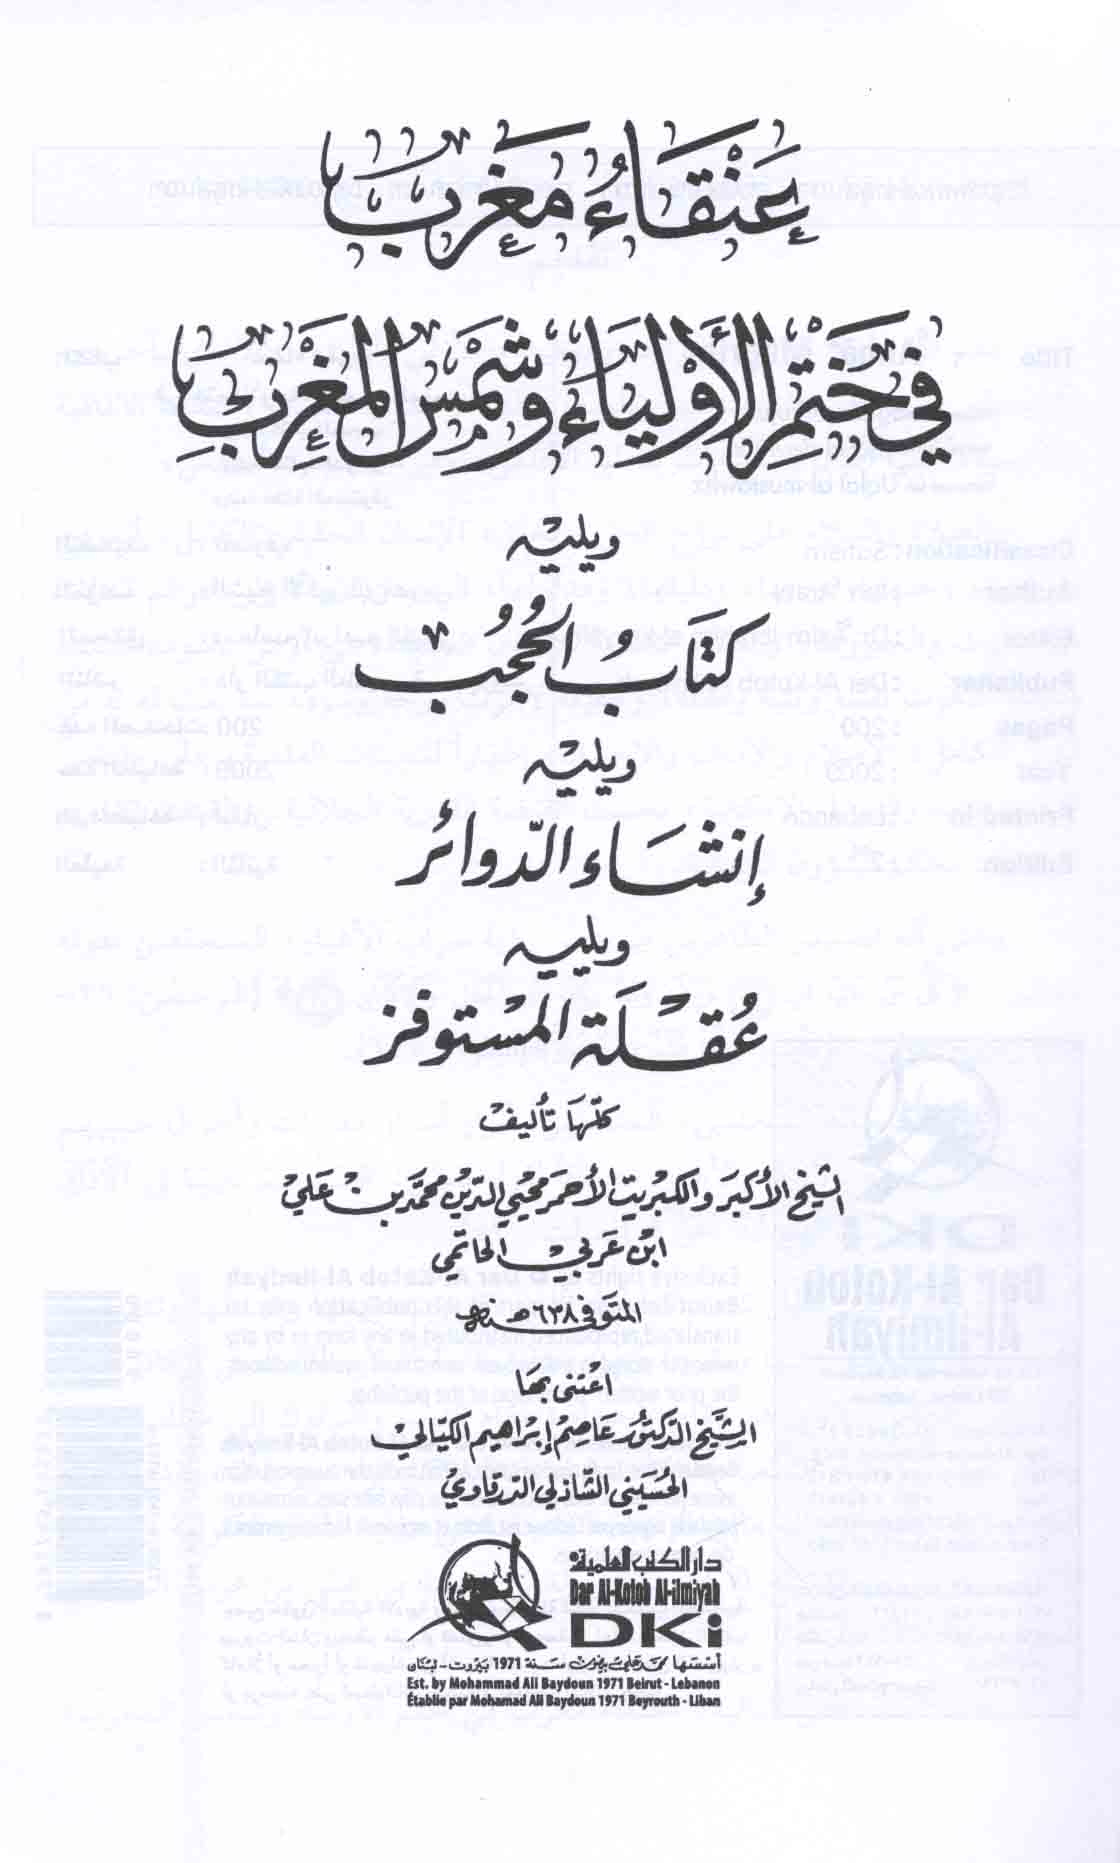 عَنْقَاءُ مُغْرِب
في خَتْمِ الأَوْلِيَاءِ وَشَمْسِ المَغْرِب
ويليه
كتَابُ الحُجُب
ويليه
إنشَاء الدّوائر
ويليه
عُقلَة المستوفز
كلّها تأليف
الشيخ الأكبر والكبريت الأحمر محيي الدين محمد بن علي
ابن عربي الحاتمي
المتوفى ٦٣٨ هـنة
اعتنى بها
الشيخ الدكتور عاصم إبراهيم الكيالي
الحسيني الشاذلي الدرقاوي
دار الكتب العلمية
Dar Al-Kotob Al-ilmiyah
DKi
أسسها محمد علي بيضون سنة 1971 بيروت - لبنان
Est. by Mohammad Ali Baydoun 1971 Beirut - Lebanon
Établie par Mohamad Ali Baydoun 1971 Beyrouth - Liban